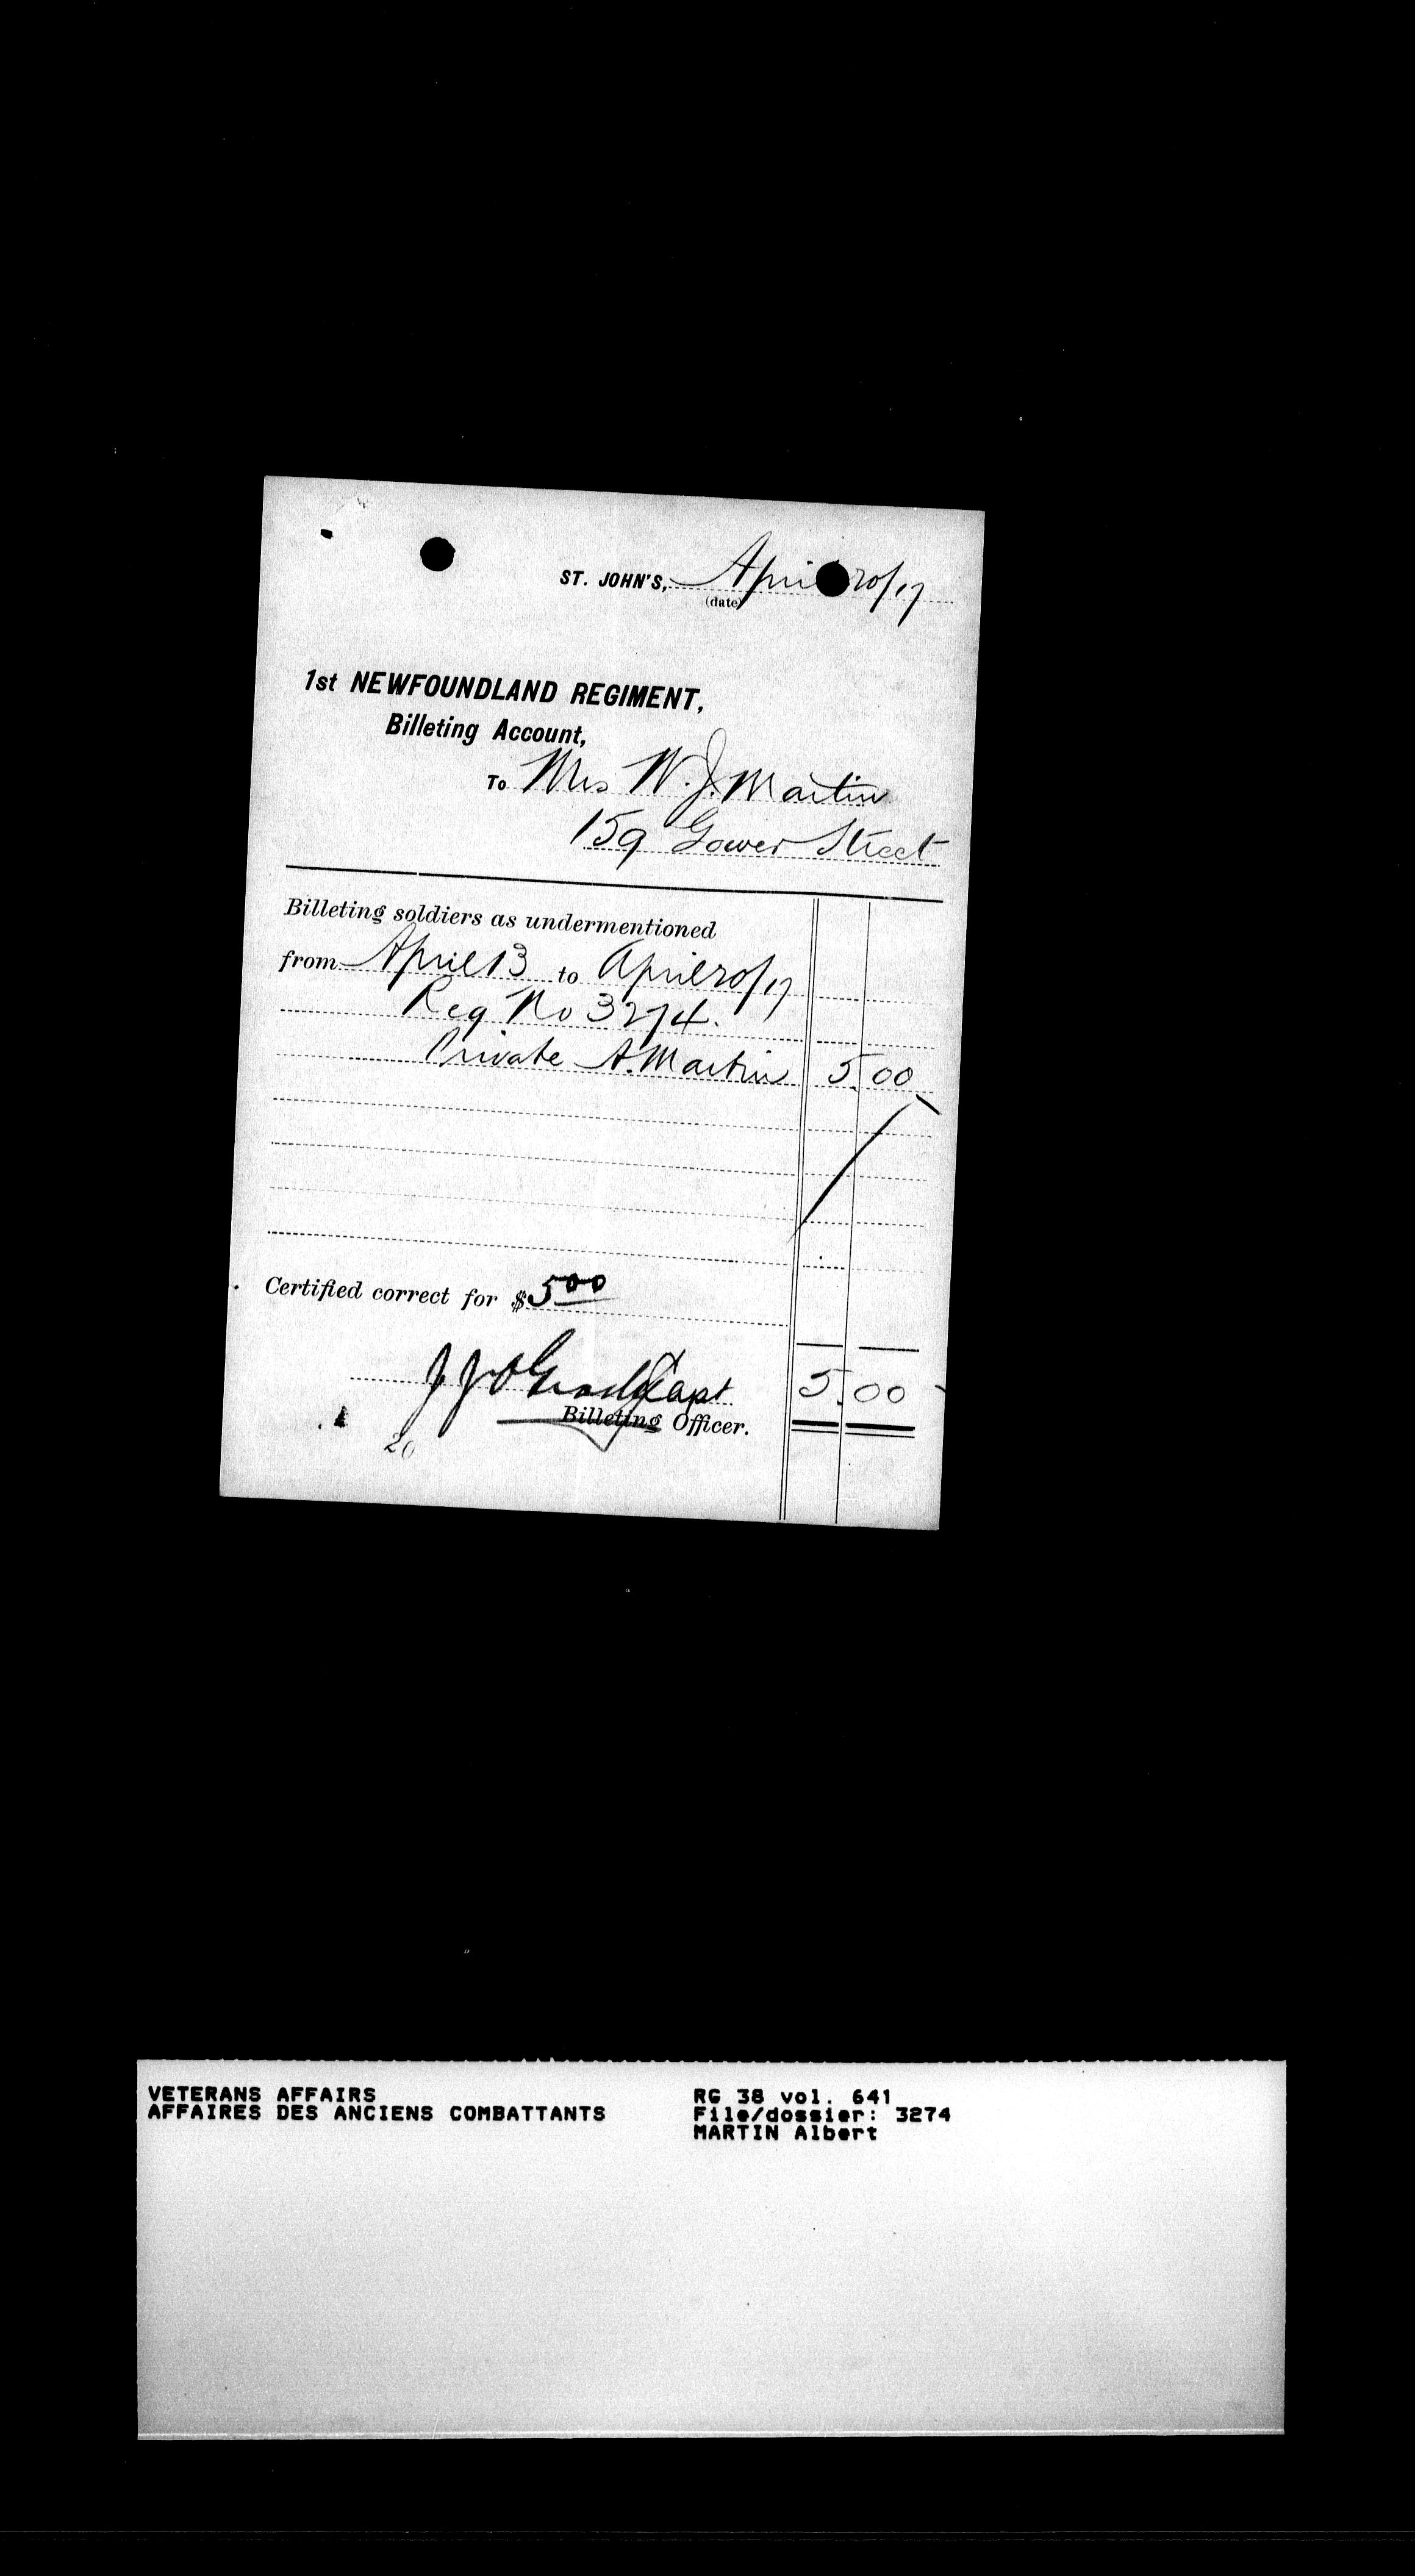 ST. JOHN'S, April 20/17
(date)
1st NEWFOUNDLAND REGIMENT,
Billeting Account,
To Mrs W. J. Martin
159 Gower Street
Billeting soldiers as undermentioned
from April 13 to April 20/17
Reg No 3274.
Private A. Martin 5.00
Certified correct for $5.00
J J O'Grady Capt 5.00
Billeting Officer.
20
VETERANS AFFAIRS
AFFAIRES DES ANCIENS COMBATTANTS
RG 38 vol. 641
File/dossier: 3274
MARTIN Albert